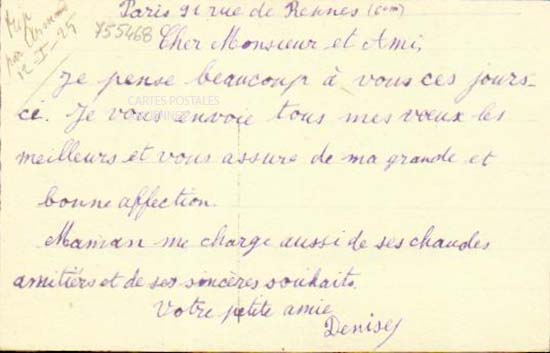 Paris 91 rue de Rennes (6em)
755468
Cher Monsieur et Ami,
Je pense beaucoup à vous ces jours-
ci. Je vous envoie tous mes vœux les
meilleurs et vous assure de ma grande et
bonne affection.
Maman me charge aussi de ses chaudes
amitiérs et de ses sincères souhaits.
Votre petite amie
Denise
par
12-I-25
CARTES POSTALES